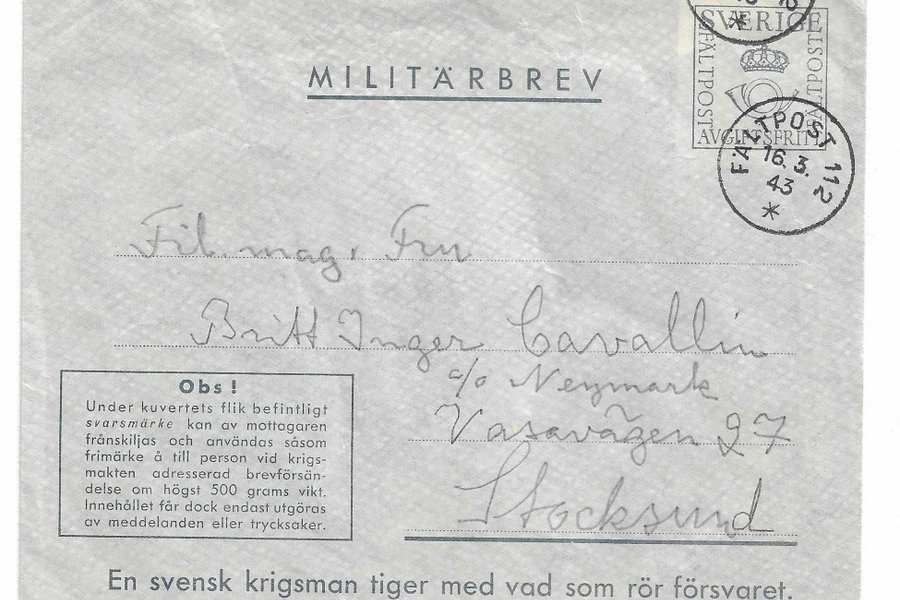 SVERIGE
FÄLTPOST
FÄLTPOST
AVGIFTSFRITT
MILITÄRBREV
FÄLTPOST 112
16. 3.
43
Fil. mag. Fru
Britt Inger Cavallin
c/o Neymark
Vasavägen 27
Stocksund
Obs!
Under kuvertets flik befintligt
svarsmärke kan av mottagaren
frånskiljas och användas såsom
frimärke å till person vid krigs-
makten adresserad brevförsän-
delse om högst 500 grams vikt.
Innehållet får dock endast utgöras
av meddelanden eller trycksaker.
En svensk krigsman tiger med vad som rör försvaret.